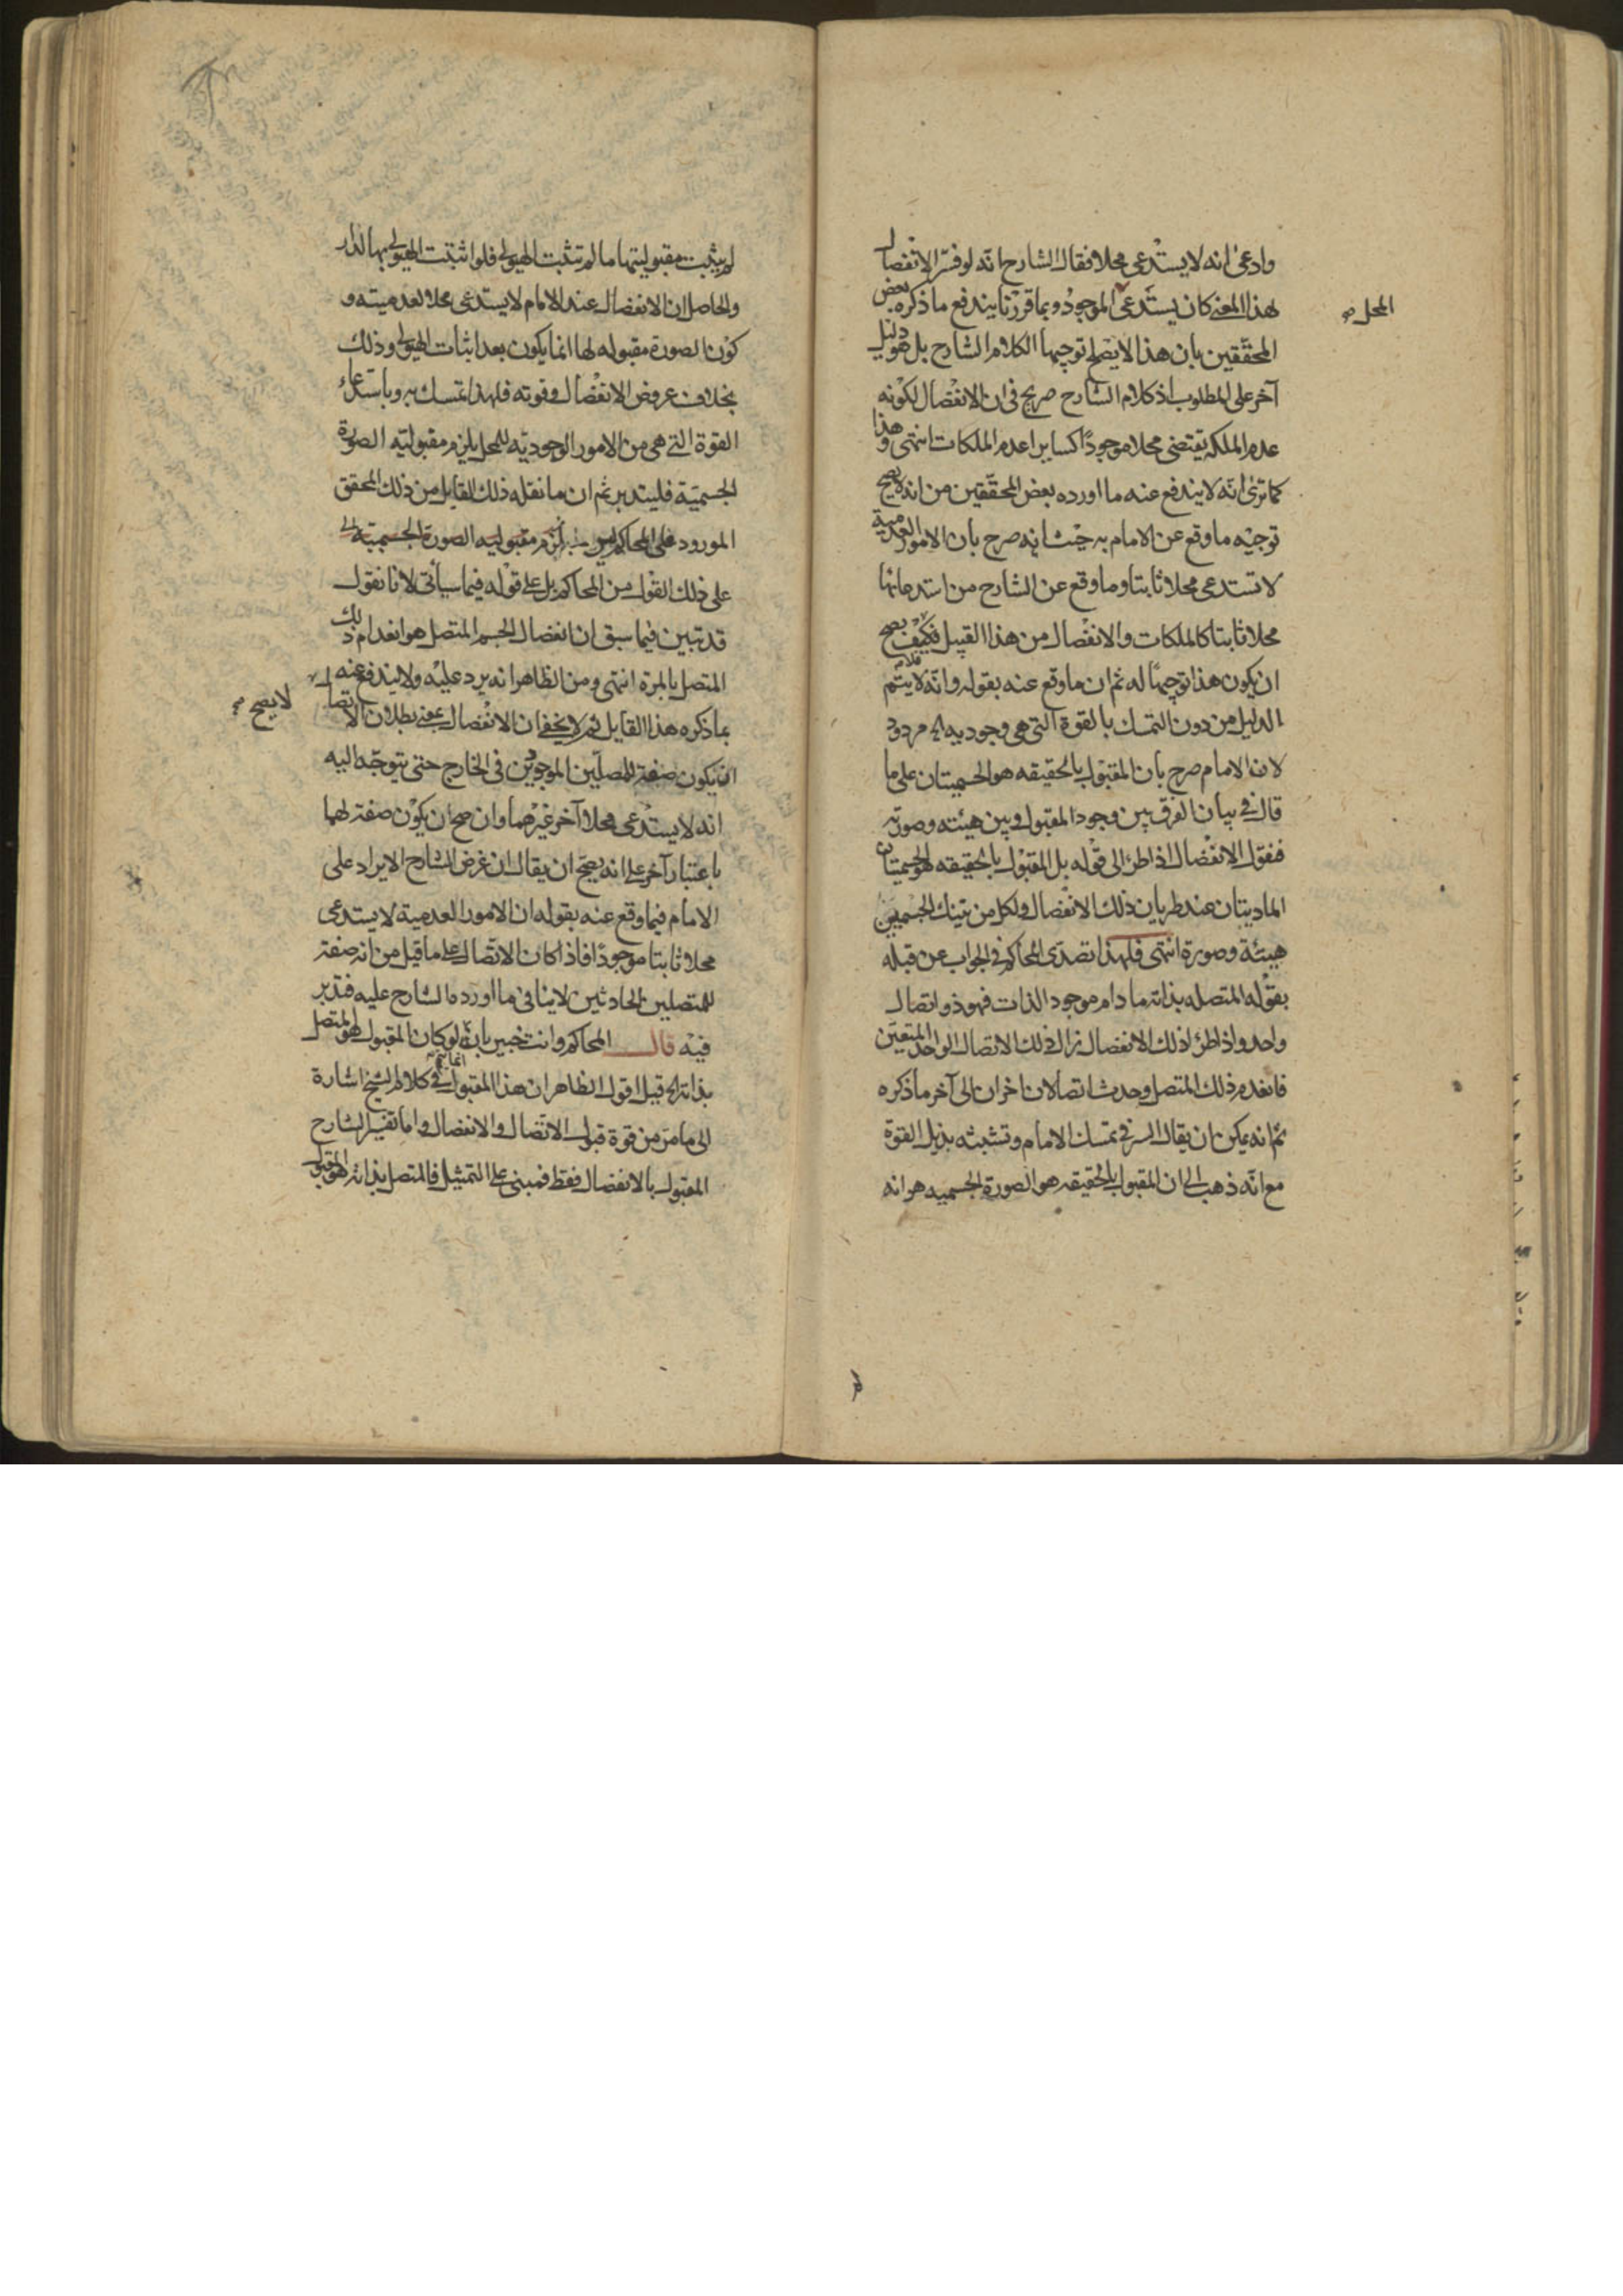 وادعى انه لا يستدعى محلا فقال الشارح انه لو فسر الانفصال
بهذا المعنى كان يستدعى الموجود وبما قررنا يندفع ما ذكره بعض
المحل صح
المحققين بان هذا لا يصلح توجيها لكلام الشارح بل هو دليل
آخر على المطلوب اذ كلام الشارح صريح فى ان الانفصال لكونه
عدم الملكه يقتضى محلا موجودًا كساير اعدم الملكات انتهى وهذا
كما ترى انه لا يندفع عنه ما اورده بعض المحققين من انه لا يصح
توجيه ما وقع عن الامام به حيث انه صرح بان الامور العدمية
لا تستدعى محلا ثابتا وما وقع عن الشارح من استدعائها
محلا ثابتا كالملكات والانفصال من هذا القبيل فكيف يصح
ان يكون هذا توجيها له ثم ان ما وقع عنه بقوله وانه لا يتم
كلامه
الدليل من دون التمسك بالقوة التى هى وجوديه مردود
لان الامام صرح بان المقبول بالحقيقه هو الجسميتان على ما
قال فى بيان الفرق بين وجود المقبول وبين هيئته وصورته
فنقول الانفصال اذا طرء الى قوله بل المقبول بالحقيقه هو الجسميتان
الماديتان عند طريان ذلك الانفصال ولكل من تينك الجسميتين
هيئة وصورة انتهى فلهذا تصدى المحاكم فى الجواب عن قبله
بقوله المتصله بذاته ما دام موجود الذات فهو ذو اتصال
واحد واذا طرء ذلك الانفصال زال ذلك الاتصال الواحد المتعين
فانعدم ذلك المتصل وحدث اتصالان اخران الى آخر ما ذكره
ثم انه يمكن ان يقال السر فى تمسك الامام وتشبثه بذيل القوة
مع انه ذهب الى ان المقبول بالحقيقه هو الصورة الجسميه هو انه
لم يثبت مقبوليتها ما لم تثبت الهيولى فلو اثبتت الهيولى بها لدار
والحاصل ان الانفصال عند الامام لا يستدعى محلا لعدميته و
كون الصورة مقبوله لها انما يكون بعد اثبات الهيولى وذلك
بخلاف عروض الانفصال وقوته فلهذا تمسك به وباستدعاء
القوة التى هى من الامور الوجوديه للمحل يلزم مقبوليته الصورة
الجسمية فليتدبر ثم ان ما نقله ذلك القايل من ذلك المحقق
المورود على المحاكم ليس لزوم مقبوليه الصورة الجسميه
على ذلك القول من المحاكم بل على قوله فيما سيأتى لانا نقول
قد تبين فيما سبق ان انفصال الجسم المتصل هو انعدام ذلك
المتصل بالمرة انتهى ومن الظاهر انه يرد عليه ولا يندفع عنه
بما ذكره هذا القايل ثم لا يخفى ان الانفصال بمعنى بطلان الاتصال
لا يصح صح
ان يكون صفة للمتصلين الموجودين فى الخارج حتى يتوجه اليه
انه لا يستدعى محلا آخر غيرهما وان صح ان يكون صفة لهما
باعتبار آخر على انه يصح ان يقال ان غرض الشارح الايراد على
الامام فيما وقع عنه بقوله ان الامور العدمية لا يستدعى
محلا ثابتا موجودًا فاذا كان الاتصال على ما قيل من انه صفة
للمتصلين الحادثين لا ينافى ما اورده الشارح عليه فتدبر
فيه قال المحاكم وانت خبير بانه لو كان المقبول هو المتصل
بذاته الخ قيل اقول الظاهر ان هذا المقبول فى كلام الشيخ اشارة
الى ما مر من قوة قبول الاتصال والانفصال واما تفسير الشارح
المقبول بالانفصال فقط فمبنى على التمثيل فالمتصل بذاته هو المقبول